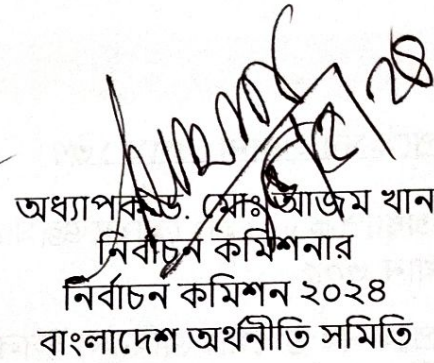 অধ্যাপক ড. মোঃ আজম খান
নির্বাচন কমিশনার
নির্বাচন কমিশন ২০২৪
বাংলাদেশ অর্থনীতি সমিতি